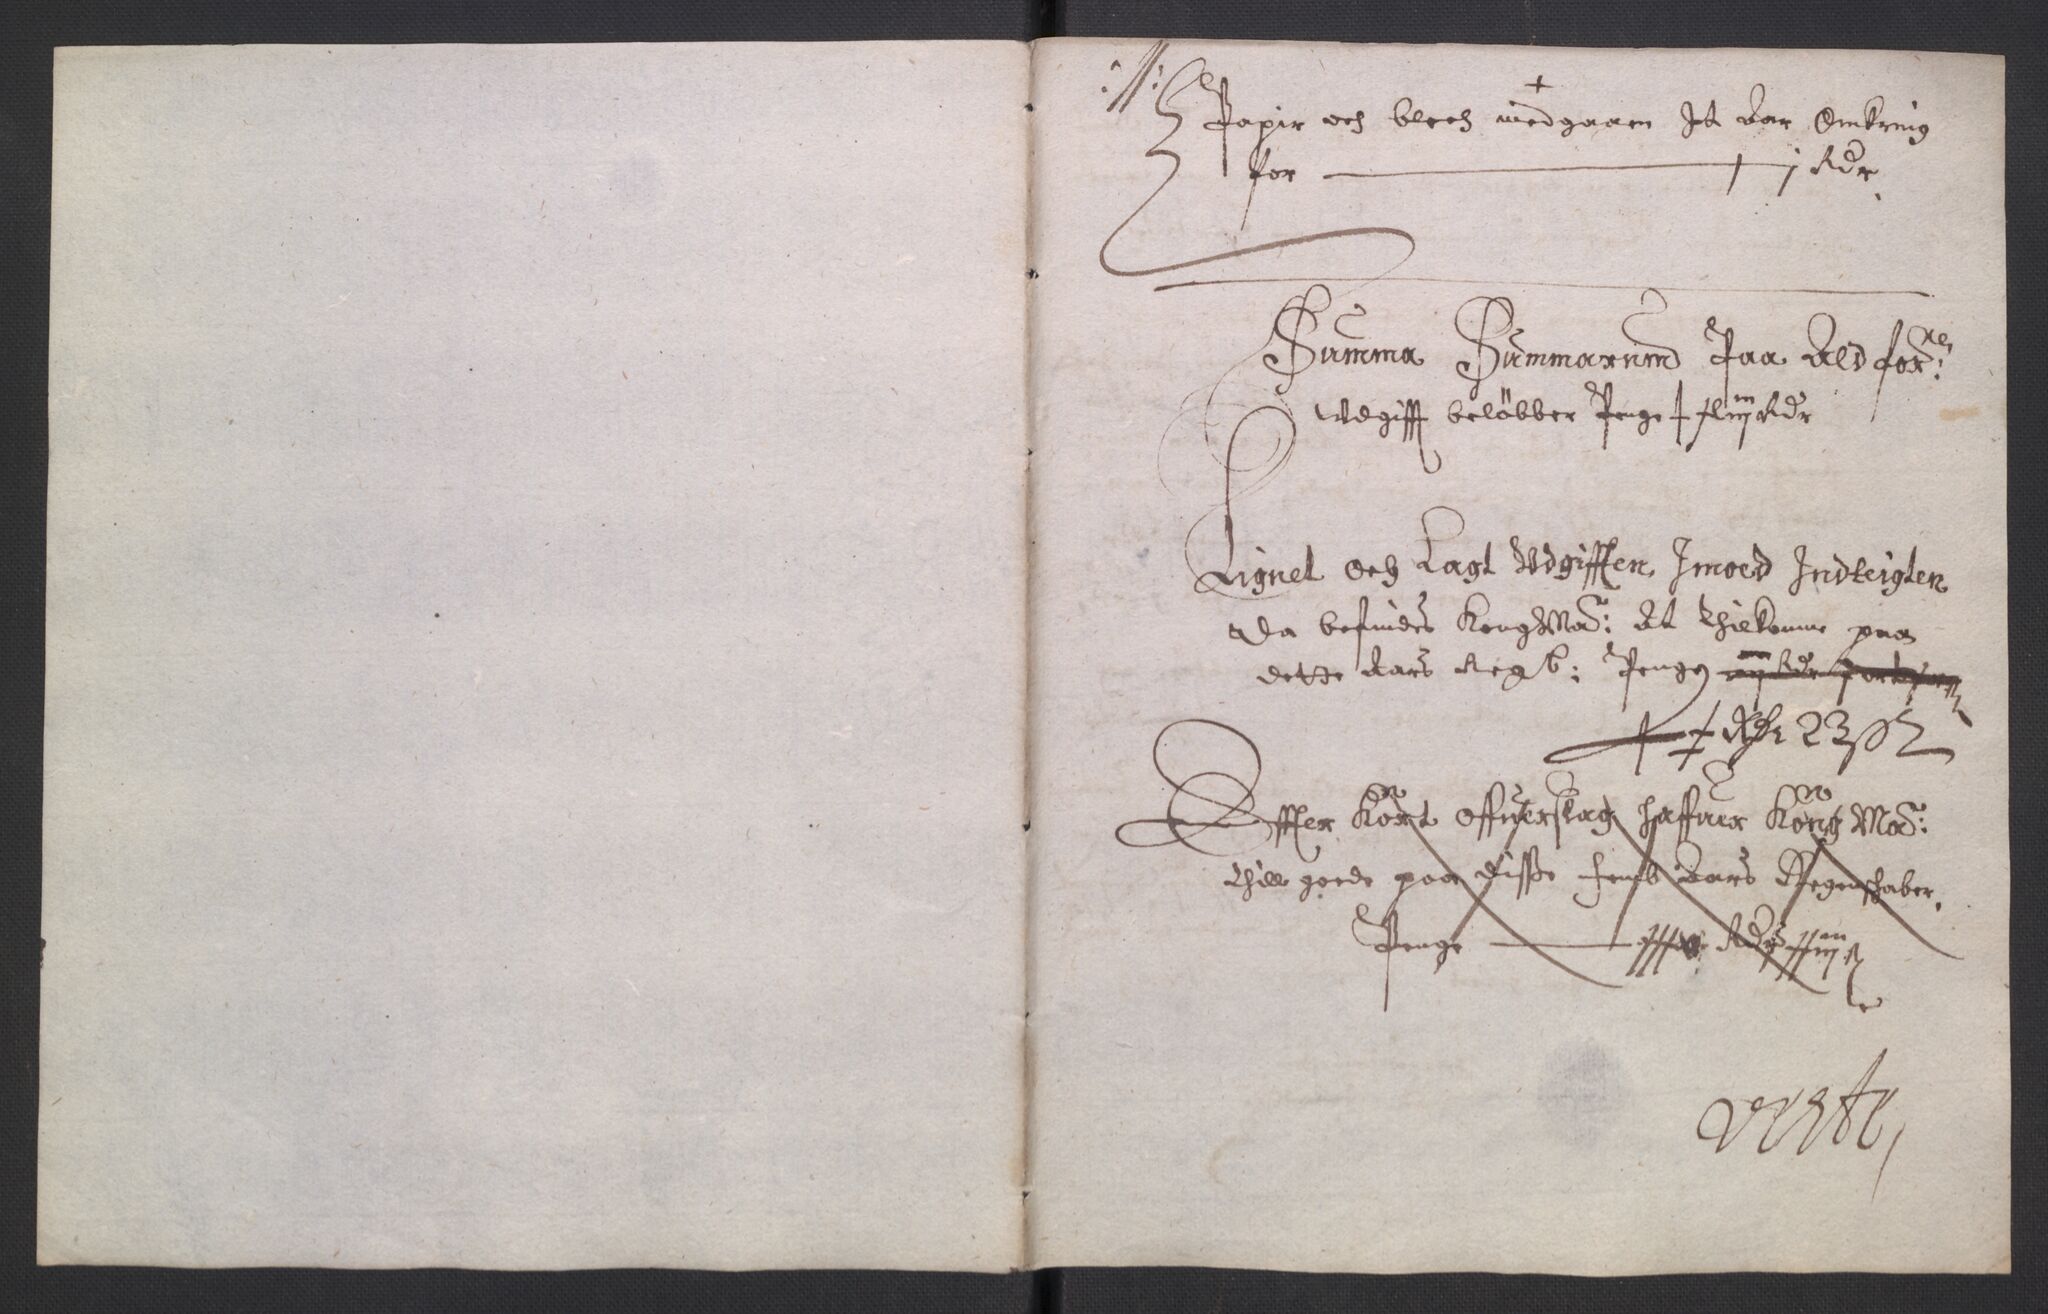 Papir och blech medgaaen Jt Aar Omkring
for — j Rdr
Summa Summarum Paa Ald for:ne
Udgifft belöbber Penge Rdr
Lignet och Lagt Udgifften Jmoed Jndteigten
Da befindes Kong Ma: At thilkomme paa
dette Aars Regb: Penge
Rdr 23
Effter Kort offuerslag haffuer Kong Ma:
thill goede paa disse femb Aars Regenschaber
Penge — Rdr
verte